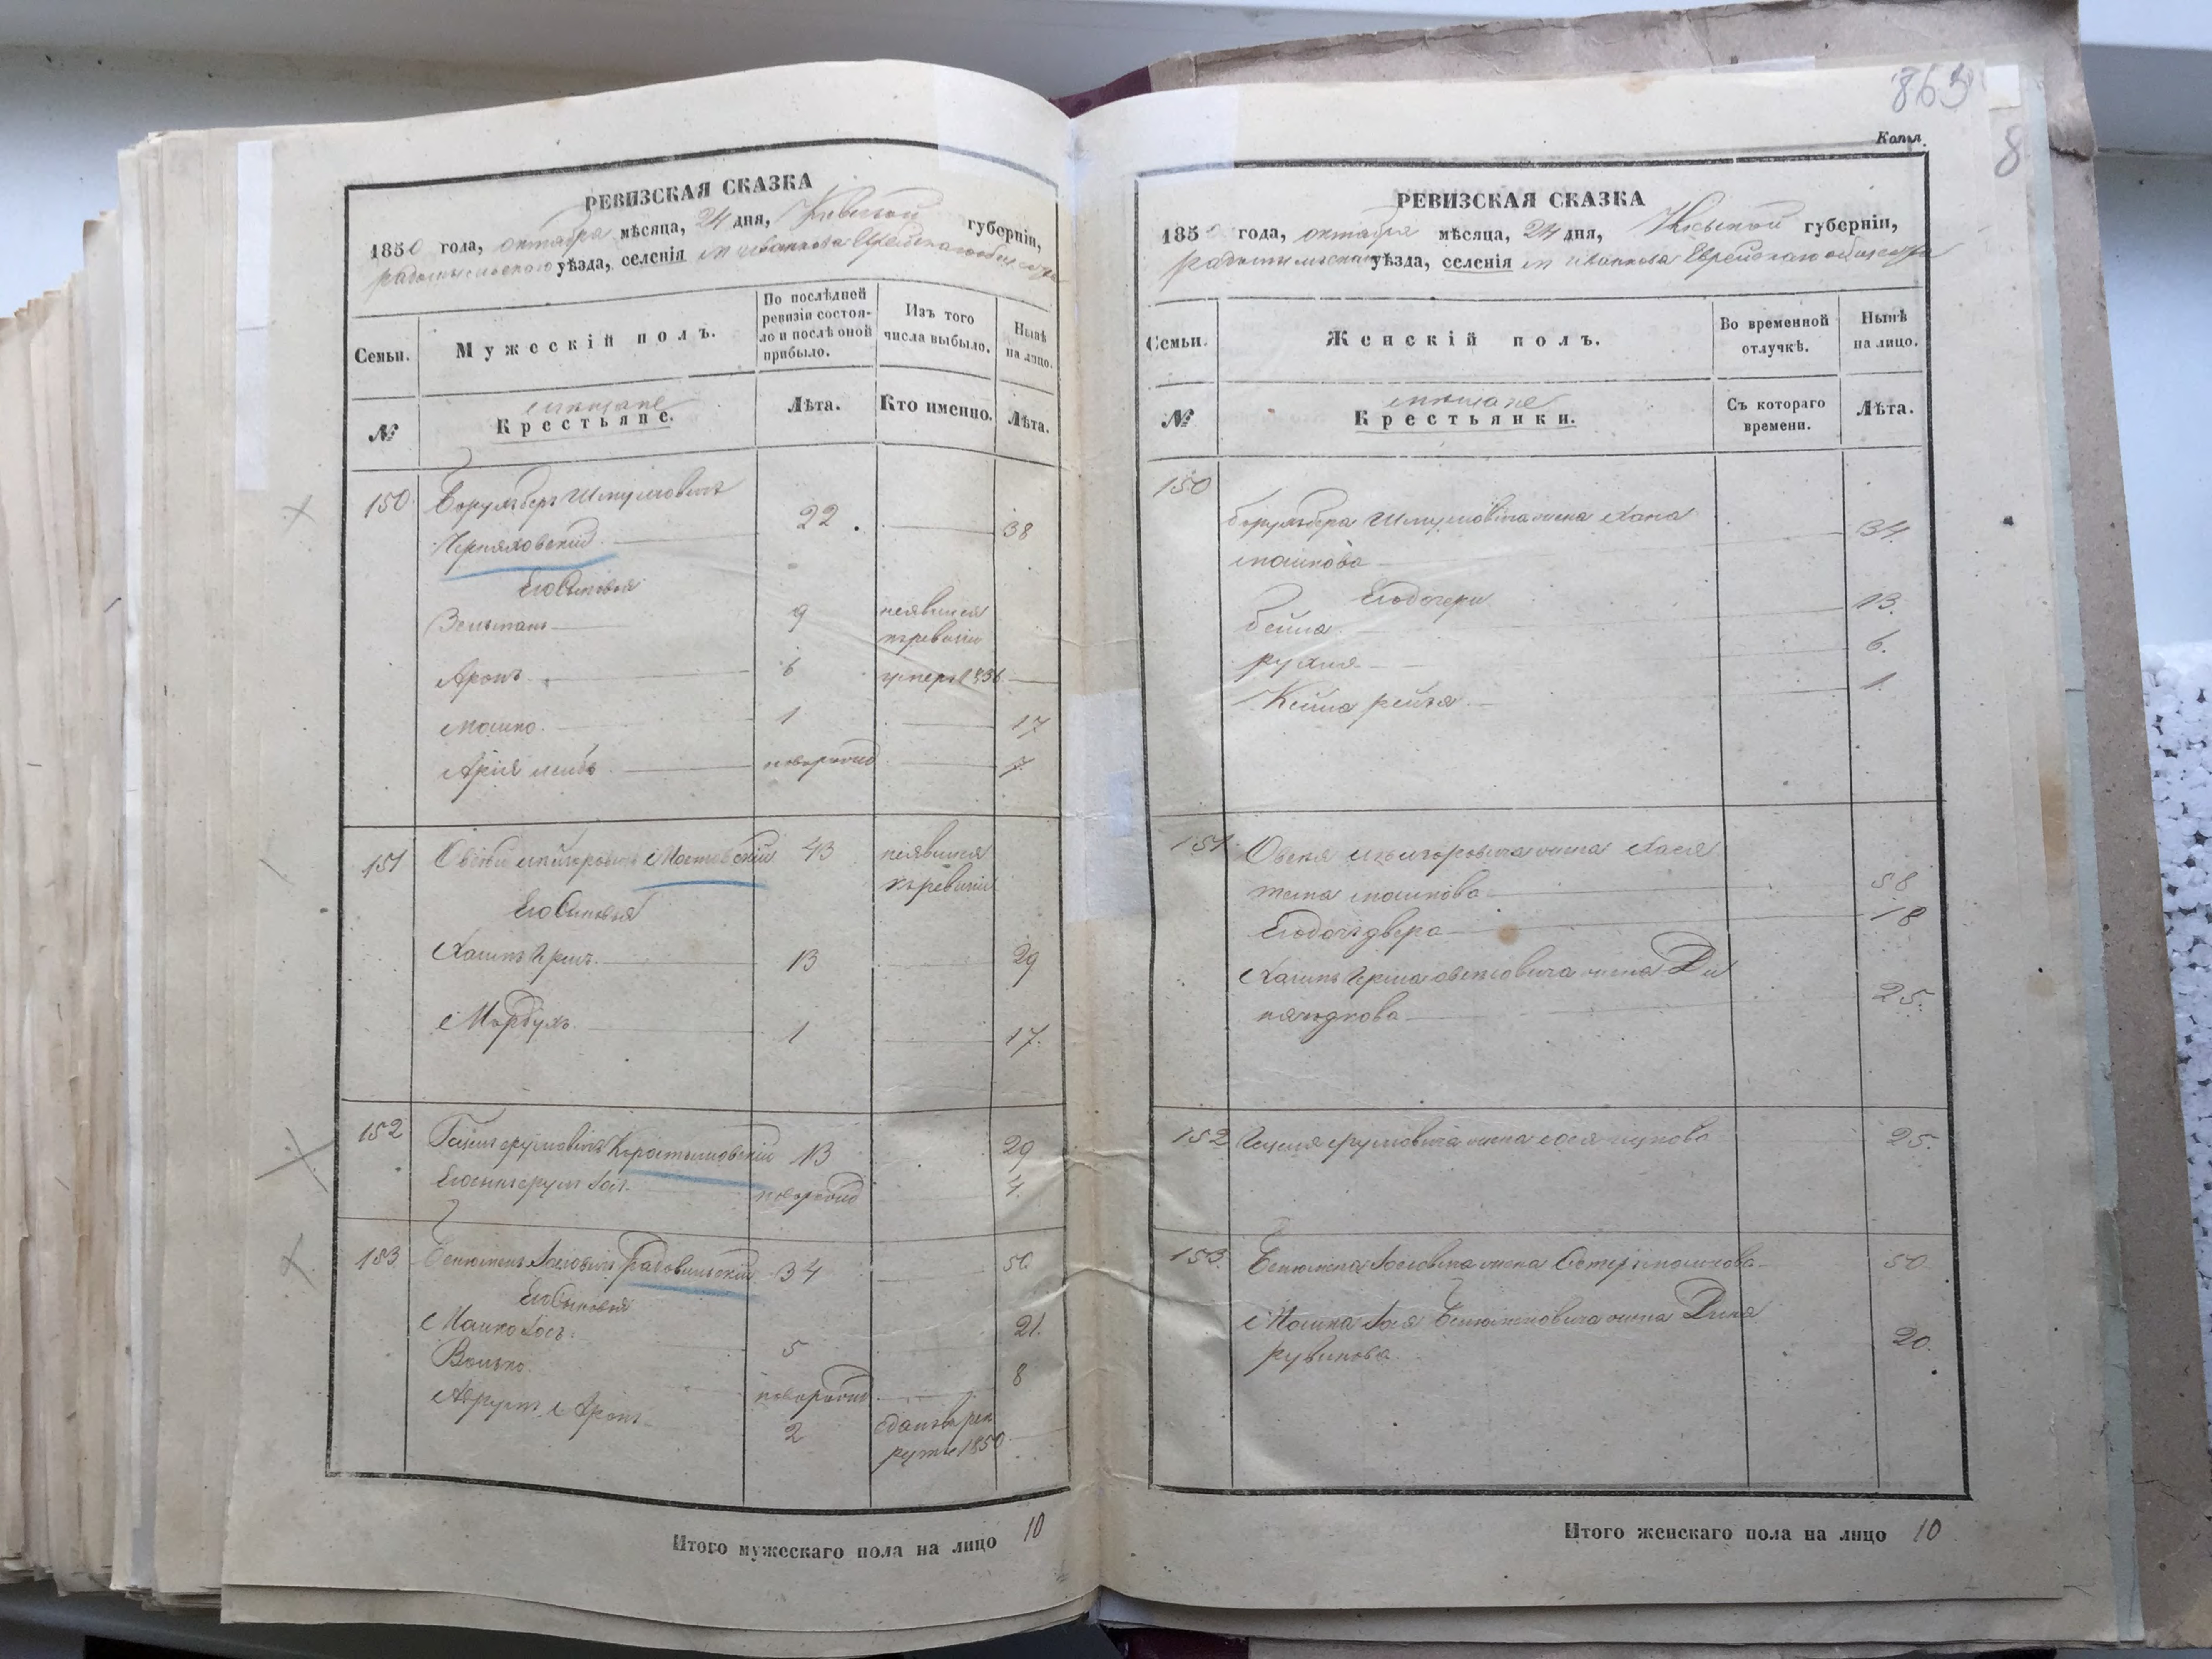 РЕВИЗСКАЯ СКАЗКА
1850 года, октября мѣсяца, 24 дня, Кіевской губерніи,
радомысльскаго уѣзда, селенія м иванкова Еврейскаго общества
Семьи.
Мужескій полъ.
По послѣдней ревизіи состояло и послѣ оной прибыло.
Изъ того числа выбыло.
Нынѣ на лицо.
№
мѣщане
Крестьяне.
Лѣта.
Кто именно.
Лѣта.
150 Борухъ беръ Шмулевичъ
Черняховскій 22 38
Его Сыновья
Зельманъ 9 неявился
къ ревизіи
Аронъ 6 умеръ 1836
мошко 1 17
Арія лейбъ новорожд 7
151 Овсѣй Мостовскій 43 неявился
къ ревизіи
Его Сыновья
Хаимъ Гершъ 13 29
Мордухъ 1 17.
152 Гецель сруловичъ Коростышовскій 13 29
Его сынъ сруль Іосъ новорожд 4.
153 Іосіовичъ Радовильскій 34 50
Его Сыновья
Мошко Іосъ 5 21.
Волько новорожд 8
Аврумъ Аронъ 2 сданъ въ рек
руты 1850
Итого мужескаго пола на лицо 10
863
8
Копія.
РЕВИЗСКАЯ СКАЗКА
1850 года, октября мѣсяца, 24 дня, Кіевской губерніи,
радомысльскаго уѣзда, селенія м иванкова Еврейскаго общества
Семьи.
Женскій полъ.
Во временной отлучкѣ.
Нынѣ на лицо.
№
мѣщане
Крестьянки.
Съ котораго времени.
Лѣта.
150
борухъ бера Шмулiовича жена Хана
мошкова 34.
Его дочери
бейла 13.
рухля 6.
Кейла рейзя 1.
151 Овсея жена Хася
мошкова 58
Его дочь двера 18
Хаимъ Герша овсеіовича жена
25.
152 Гецеля сруловича жена ицкова 25.
153. Іосіовича жена Естеръ мошкова 50
Мошка Іося жена Дина
рувинова 20.
Итого женскаго пола на лицо 10